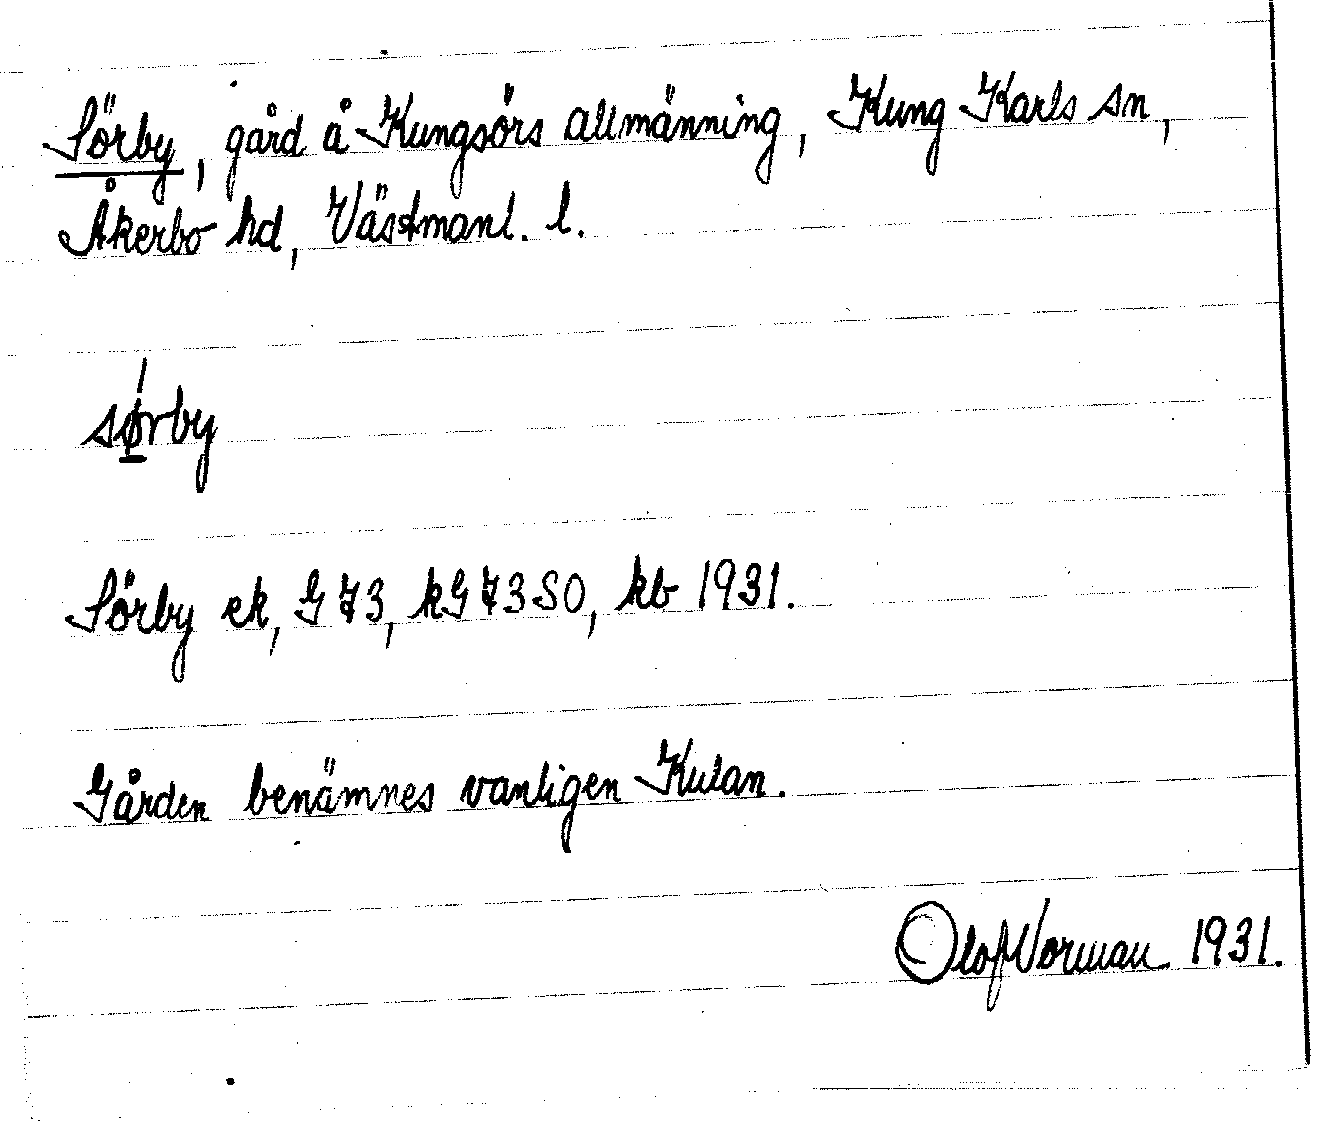 Sörby, gård å Kungsörs allmänning, Kung Karls sn,
Åkerbo hd, Västmanl. l.
sørby
Sörby ek, G 73, kG 73 SO, kb 1931.
Gården benämnes vanligen Kulan.
Olof Vorman 1931.